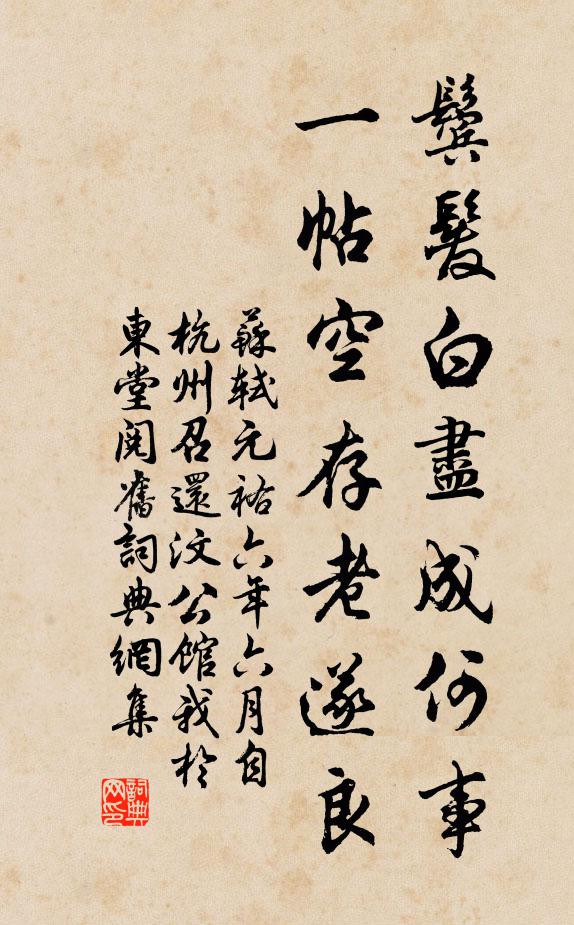 鬢髮白盡成何事
一帖空存老遂良
蘇軾元祐六年六月自
杭州召還汶公館我於
東堂閱舊詞典網集
詞典
网印